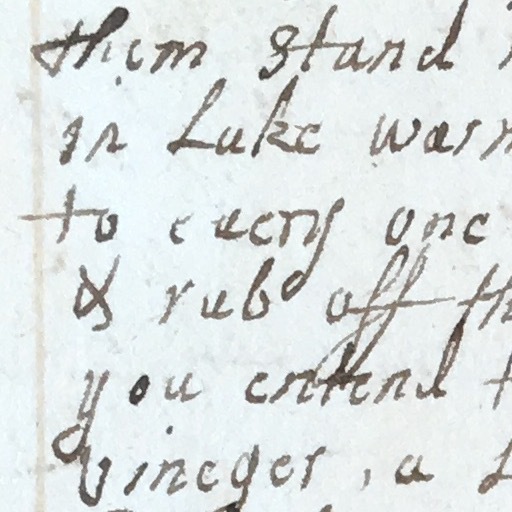 them stand
in Luke warm
to euery one
& rub off th
you entend t
Vineger, a L